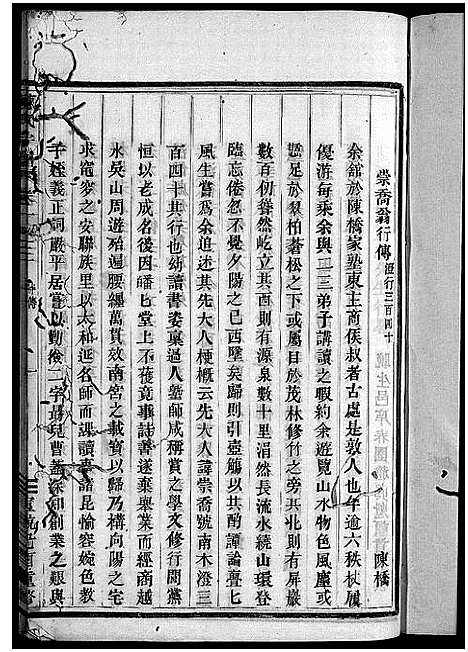 崇喬翁行傳 澄行三百四十 陳橋
余館於陳橋家塾東主商侯叔者古處是敦人也年逾六秩杖履
優游每乘余與二三弟子講讀之暇約余遊覽山水物色風塵或
憇足於翠柏蒼松之下或屬目於茂林修竹之旁其北則有屏巖
數百仞聳然屹立其前則有源泉數十里涓然長流水繞山環登
臨忘倦忽不覺夕陽之已西墜矣歸則引壺觴以共酌譚論亹七
風生嘗爲余追想先大人梗概云先大人諱崇喬號南木澄三
百四十其行也幼讀書姿稟過人塾師咸稱賞之學文修行閭黨
恒以老成名後因 堂上不 事詩書遂棄舉業而經商越
水吳山周遊殆遍腰纏萬貫效南宮之載寶以歸乃構向陽之宅
求窀穸之安聯族里以太和延名師而課讀臺諸昆愉容婉色教
子姪義正詞嚴平居嘗以勤儉二字 兒曹蓋深知創業之艱與